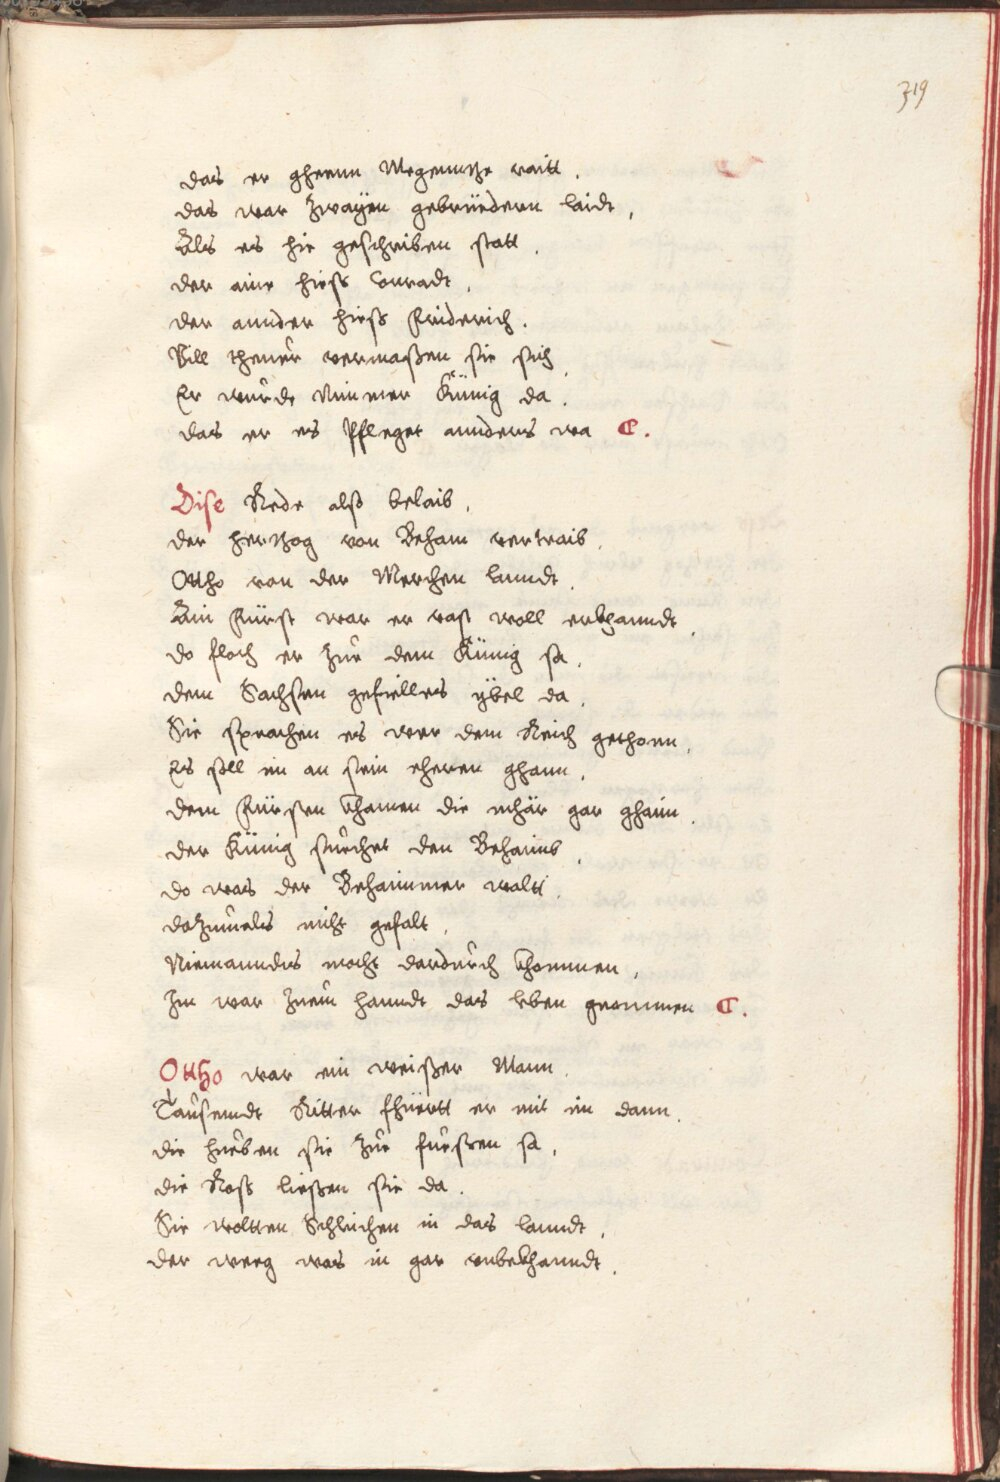 319
das er ghenn Megenntze raitt.
das war zwayen gebrüedern laidt,
Als es hie geschriben statt.
der aine hiess Conradt,
der annder hieß Friderich.
Vill theuer vermaßen sie sich,
Er wurde Nimmer Künig da.
das er es Pfleget annders wa C.
Dise Rede alß belaib,
der Hertzog von Beham vertraib,
Ottho von der Merchen lanndt,
Ain Fürst war er vast woll erkhanndt,
do floch er zue dem Künig sa,
dem Sachsen gefiellers ÿbel da,
Sie sprachen es wer dem Reich gethonn,
Es soll im an sein eheren ghann,
dem Fürsten khamen die mhär gar ghain,
der Künig suechet den Behaimb,
do was der Behaimmer waltt,
dozumals nicht gefalt,
Niemanndts mocht dardurch khommen,
Im war zuem hanndt das leben genommen C.
Ottho war ein weißer Mann,
Tausendt Ritter fhüertt er mit im dann,
die hueben sie zue fueßen sa,
die Ross ließen sie da.
Sie woltten Schleichen in das lanndt,
der weeg was in gar unbekhanndt.